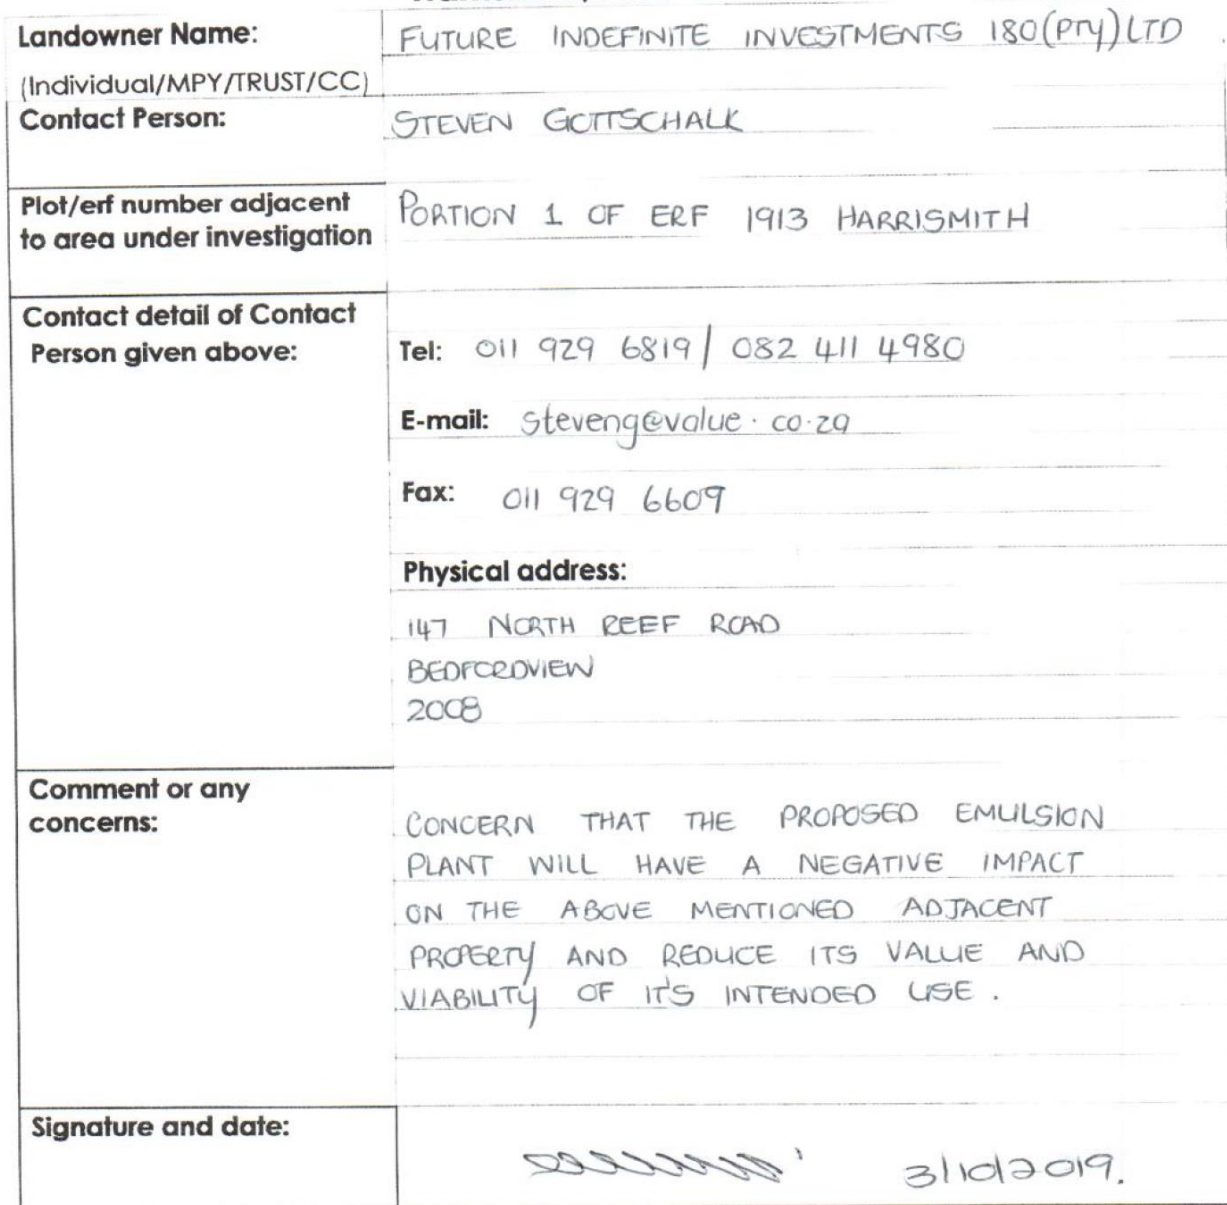 Landowner Name: FUTURE INDEFINITE INVESTMENTS 180(PTY)LTD
(Individual/MPY/TRUST/CC)
Contact Person: STEVEN GOTTSCHALK
Plot/erf number adjacent
to area under investigation
PORTION 1 OF ERF 1913 HARRISMITH
Contact detail of Contact
Person given above:
Tel: 011 929 6819 / 082 411 4980
E-mail: steveng@value.co.za
Fax: 011 929 6609
Physical address:
147 NORTH REEF ROAD
BEDFORDVIEW
2008
Comment or any
concerns:
CONCERN THAT THE PROPOSED EMULSION
PLANT WILL HAVE A NEGATIVE IMPACT
ON THE ABOVE MENTIONED ADJACENT
PROPERTY AND REDUCE ITS VALUE AND
VIABILITY OF IT'S INTENDED USE.
Signature and date:
3/10/2019.